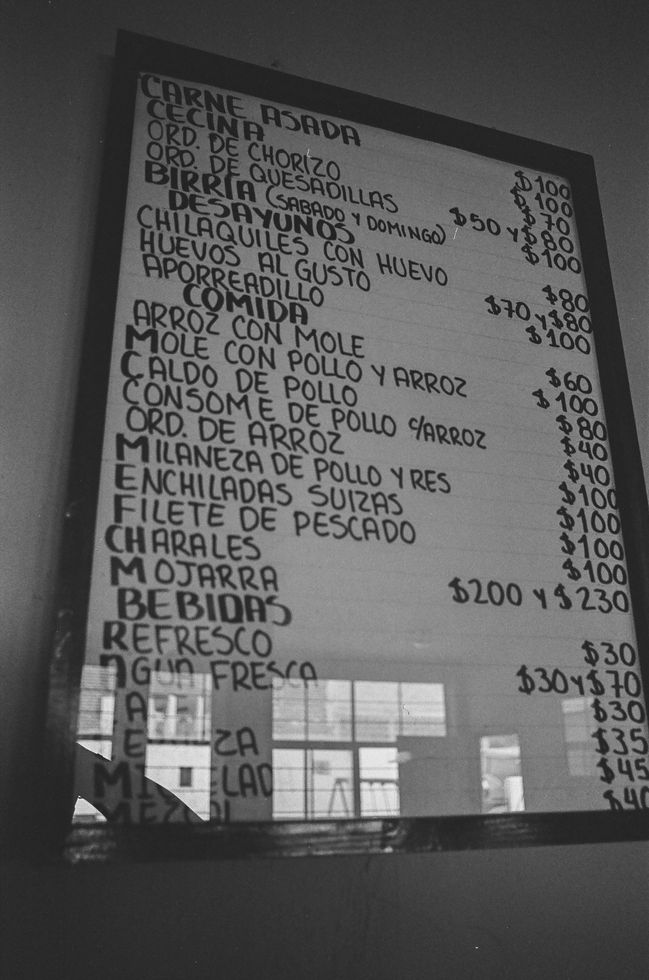 CARNE ASADA $100
CECINA $100
ORD. DE CHORIZO $70
ORD. DE QUESADILLAS $50 y $80
BIRRIA (SABADO Y DOMINGO) $100
DESAYUNOS
CHILAQUILES CON HUEVO $80
HUEVOS AL GUSTO $70 y $80
APORREADILLO $100
COMIDA
ARROZ CON MOLE $60
MOLE CON POLLO Y ARROZ $100
CALDO DE POLLO $80
CONSOME DE POLLO c/ARROZ $40
ORD. DE ARROZ $40
MILANEZA DE POLLO Y RES $100
ENCHILADAS SUIZAS $100
FILETE DE PESCADO $100
CHARALES $100
MOJARRA $200 y $230
BEBIDAS
REFRESCO $30
AGUA FRESCA $30 y $70
$30
$35
$45
MEZCAL $40